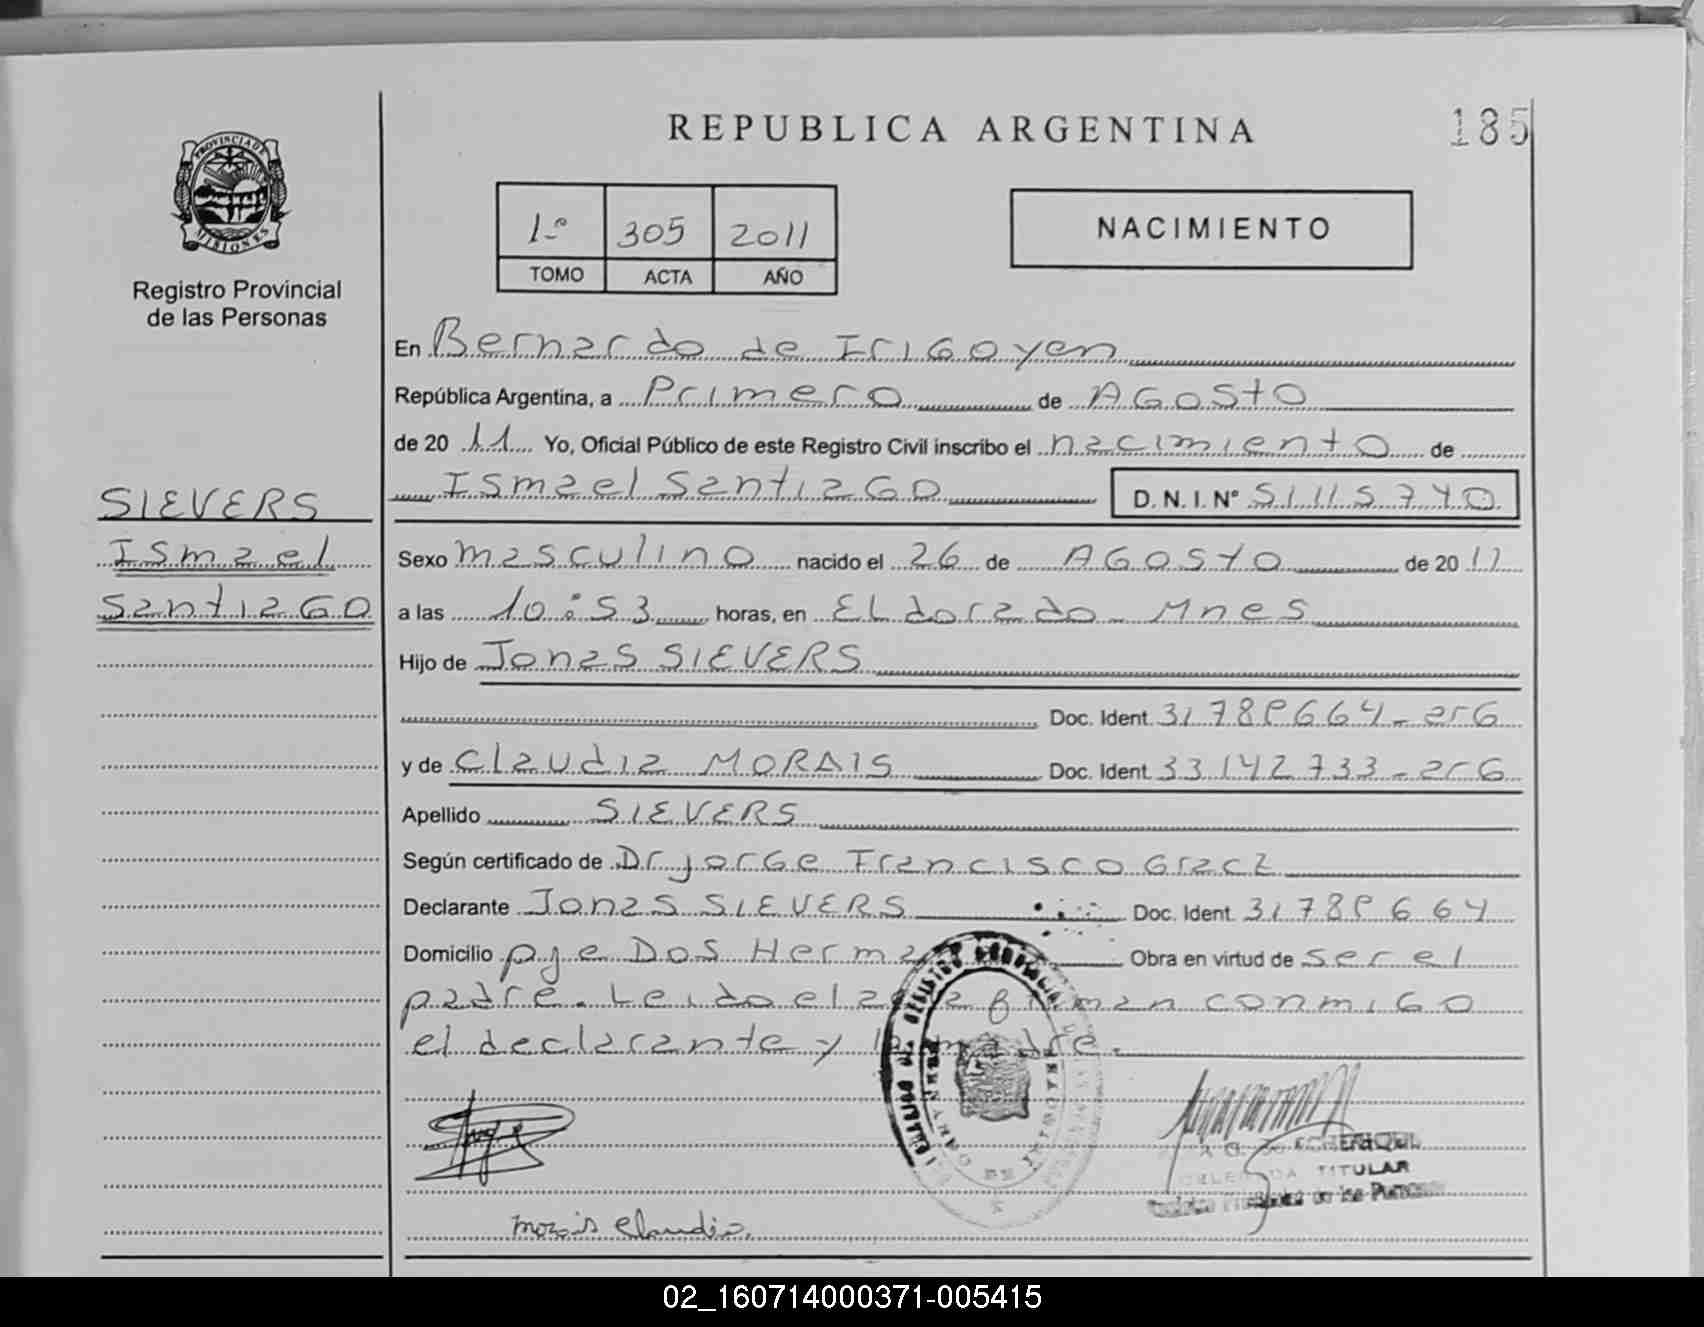 REPUBLICA ARGENTINA
185
PROVINCIA DE
MISIONES
Registro Provincial
de las Personas
1º 305 2011
TOMO ACTA AÑO
NACIMIENTO
En Bernardo de Irigoyen
República Argentina, a Primero de AGosto
de 2011 Yo, Oficial Público de este Registro Civil inscribo el nacimiento de
Ismael Santiago D. N. I. Nº 51115740
SIEVERS
Ismael
Santiago
Sexo masculino nacido el 26 de AGosto de 2011
a las 10:53 horas, en ELdorado - Mnes
Hijo de Jonas SIEVERS
Doc. Ident. 31789664 - arG
y de Claudia MORAIS Doc. Ident. 33142733 - arG
Apellido SIEVERS
Según certificado de Dr jorGe Francisco Gracz
Declarante Jonas SIEVERS Doc. Ident. 31789664
Domicilio pje Dos Herma Obra en virtud de ser el
padre. Leido el acta firman conmiGo
el declarante y la madre.
TITULAR
de las Personas
Morais Claudia.
02_160714000371-005415